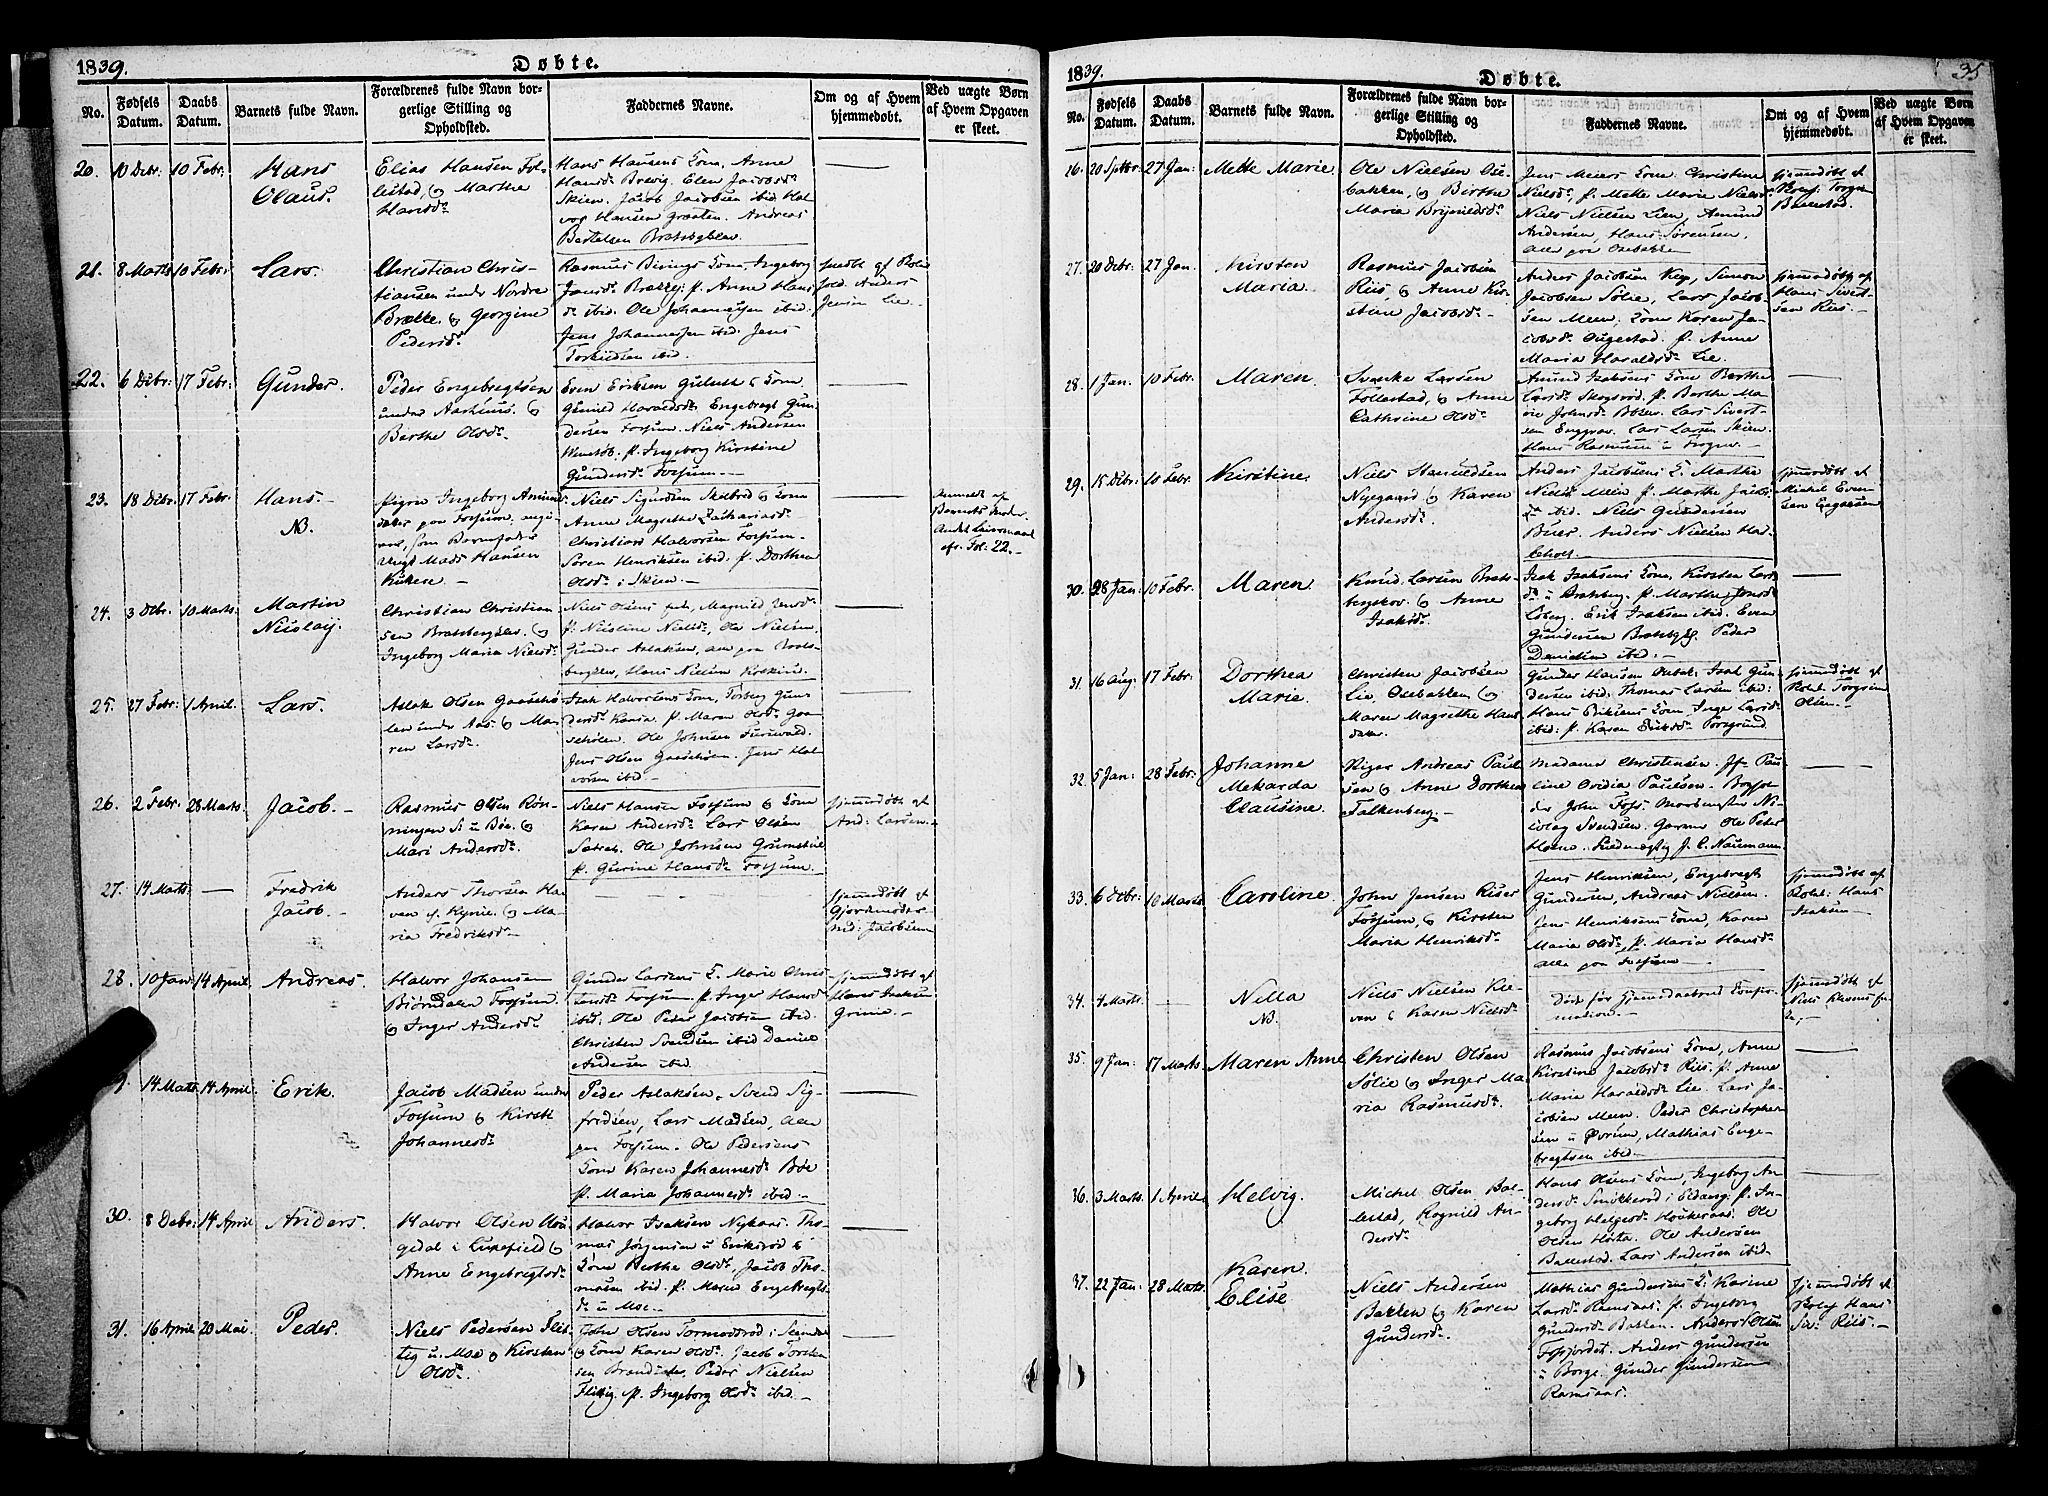 1839.
Døbte.
No.
Fødsels Datum.
Daabs Datum.
Barnets fulde Navn.
Forældrenes fulde Navn bor-
gerlige Stilling og
Opholdsted.
Faddernes Navne.
Om og af Hvem
hjemmedøbt.
Ved uægte Børn
af Hvem Opgaven
er skeet.
20. 10 Debr: 10 Febr:
Hans
Olaus.
Elias Hansen Fol-
lestad, og Marthe
Hansdr
Hans Hansens Kone, Anne
Hansdr Brevig. Elen Jacobsdr
Skien. Jacob Jacobsen ibid. Hal
vor Hansen Graaten. Andreas
Bertelsen Bratsbgklev.
21. 8 Marts 10 Febr:
Lars.
Christian Chris-
tiansen under Nordre
Brække. og Georgine
Pedersdr
Jansdr Brække: p. Anne Hans
dr ibid. Ole Johannessen ibid.
Jens Johannessen ibid. Jens
ibid.
22. 6 Debr: 17 Febr:
Gunder.
Peder Engebregtsen
under Aarhuus. og
Berthe Olsdr
Even Eriksen Gulseth & Kone
Gunild Haraldsdr Engebregt Gun
dersen Fossum. Niels Andersen
p. Ingeborg Kirstine
Gundersdr Fossum.
23. 18 Debr: 17 Febr:
Hans
NB.
Pigen Ingeborg Amund
datter paa Fossum, angi-
vet, som Barnefader
Ungk. Mads Hansen
Niels Sigurdsen Skilbred & Kone
Anne Magrethe Zachariasdr
Christian Halvorsen Fossum.
Søren Henriksen ibid. p. Dorthea
Olsdr i Skien.
Anmeldt af
Barnets Moder.
Andet Leiermaal
cfr. Fol: 22.
24. 3 Debr. 10 Marts.
Martin
Nicolaij.
Christian Christian
sen Bratsbergklev. og
Ingeborg Maria Nielsdr
p: Nicoline Nielsdr, Ole Nielsen,
Gunder Aslaksen, alle paa Brats-
bergklev, Hans Nielsen
25. 27 Febr: 1 April.
Lars.
Aslak Olsen Gaasehø
len under Aas. & Ma-
ren Larsdr
Isak Halvorsens Kone, Torberg Gun
dersdr p. Maren Olsdr Gaa
sehølen. Ole Johnsen
Jens Olsen Gaasehølen. Jens Hal
vorsen ibid
26. 2 Febr: 28 Marts.
Jacob.
Rasmus Olsen Røn-
ningen S: u Bøe. og
Mari Andersdr
Niels Hansen Fossum & Kone
Karen Andersdr Lars Olsen
Ole Johnsen
p. Gurine Hansdr Fossum.
hjemmdøbt af
And: Larsen.
27. 14 Marts.
Fredrik
Jacob.
Anders Thorsen Ha-
ven og Ma-
ria Fredriksdr
hjemmdøbt af
Gjordemoder
Jacobsen
28. 10 Jan: 14 April.
Andreas.
Halvor Johansen
Biørndalen Fossum.
og Inger Andersdr
Gunder Larsens K. Marie Chris
tensdr Fossum p. Inger Hansdr
ibid. Ole Peder Jacobsen ibid.
Christen Svendsen ibid Daniel
Andersen ibid.
hjemmdøbt af
Hans Isaksen
Grinie.
9. 14 Marts 14 April
Erik.
Jacob Madsen under
Fossum & Kirsti
Johannesdr
Peder Aslaksen, Svend Sig-
fredsen, Lars Madsen, alle
paa Fossum. Ole Pedersens
Kone Karen Johannesdr Bøe
p. Maria Johannesdr ibid.
30. 8 Debr: 14 April
Anders.
Halvor Olsen
gedal i Luxefjeld &
Anne Engebregtsdr
Halvor Isaksen Tho-
mas Jørgensen u Eriksrød &
Kone Berthe Olsdr, Jacob Tho-
massen ibid. p. Maren Engebregts
dr u Moe.
31. 16 April 20 Mai.
Peder.
Niels Pedersen Flit-
tig u. Moe & Kirsten
Olsdr
John Olsen Tormodsrød i
& Kone Karen Olsdr Jacob Torsten
sen Peder Nielsen
Flittig. p. Ingeborg Olsdr ibid.
1839.
Døbte.
35
No.
Fødsels Datum.
Daabs Datum.
Barnets fulde Navn.
Forældrenes fulde Navn bor-
gerlige Stilling og
Opholdsted.
Faddernes Navne.
Om og af Hvem
hjemmedøbt.
Ved uægte Børn
af Hvem Opgaven
er skeet.
26. 20 Septbr: 27 Jan:
Mette Marie
Ole Nielsen Ose-
bakken, & Berthe
Maria Brynildsdr
Jens Meiers Kone Christine
Nielsdr, p. Mette Marie Nielsdr
Niels Nielsen Lien, Amund
Andersen, Hans Sørensen,
alle paa Osebakken
hjemmdøbt af
Ballestad.
27. 20 Debr: 27 Jan.
Kirsten
Maria.
Rasmus Jacobsen
Riis, & Anne Kir-
stine Jacobsdr
Anders Jacobsen Simon
Jacobsen Sølie, Lars Jacob
sen Meen, Kone Karen Ja-
cobsdr p. Anne
Maria Haraldsdr Lie.
hjemmdøbt af
Hans Sivert-
sen Riis.
28. 1 Jan: 10 Febr.
Maren.
Svenke Larsen
Follestad, & Anne
Cathrine Olsdr
Amund Isaksens Kone Berthe
Larsdr p. Berthe Ma-
rie Johnsdr Lars Sivert
sen Enggrav. Lars Larsen Skien.
Hans Rasmussen
29. 15 Debr: 10 Febr.
Kirstine.
Niels
Nyegaard & Karen
Andersdr.
Anders Jacobsens K. Marthe
Nielsdr Meen p. Marthe Jacobs
dr ibid. Niels Gundersen
Buer. Anders Nielsen Has-
leholt.
hjemmdøbt af
Michel Even
sen
30. 28 Jan: 10 Febr.
Maren.
Knud Larsen Brats-
bergskov. & Anne
Isaksdr
Isak Isaksens Kone, Kirsten Lars
dr u Bratsberg. p. Marthe Jonsdr
Løberg. Erik Isaksen ibid. Even
Gundersen Bratsbg. Peder
Danielsen ibid.
31. 16 Aug: 17 Febr:
Dorthea
Marie.
Christen Jacobsen
Lie, Osebakken &
Maren Magrethe Hans
datter
Gunder Hansen Osebak: Isak Gun
dersen ibid: Thomas Larsen ibid:
Hans Eriksens Kone, Inge Larsdr
ibid: p. Karen Eriksdr Porsgrund.
hjemmdøbt af
Torgrim
Olsen.
32. 5 Jan: 28 Febr:
Johanne
Mekarda
Clausine.
Andreas Paul
sen & Anne Dorthea
Falkenberg.
Madame Christensen. Jfr Pau
line Ovidia Paulsen.
John Foss. Ni-
colay Svendsen. Ole Peder
J. C. Naumann
33. 6 Debr: 10 Marts.
Caroline.
John Jensen Riser
Fossum, & Kirsten
Maria Henriksdr
Jens Henriksen, Engebregt
Gundersen, Andreas Nielsen.
Jens Henriksens Kone, Karen
Maria Olsdr, p. Maria Hansdr
alle paa Fossum
hjemmdøbt af
Hans
Isaksen
34. Marts.
Nella
NB.
Niels Nielsen Kle-
ven & Karen Nielsdr
Døde før Hjemmedaabens Confir-
mation.
hjemmdøbt af
Niels
35. 9 Jan: 17 Marts.
Maren Anne
Christen Olsen
Sølie og Inger Ma
ria Rasmusdr
Rasmus Jacobsens Kone, Anne
Kirstine Jacobsdr Riis p. Anne
Maria Haraldsdr Lie. Lars Ja-
cobsen Meen. Peder Christopher
sen u Ørum, Mathias Enge-
bregtsen ibid.
36. 3 Marts. 1 April.
Helvig.
Michel Olsen Bal-
lestad, Rognild An-
dersdr
Hans Olsens Kone, Ingeborg An-
dersdr i Eidang. p. In-
geborg Helgesdr Ole
Olsen Ole Andersen
Ballestad. Lars Andersen ibid
37. 22 Jan: 28 Marts.
Karen
Elise
Niels Andersen
Bakken & Karen
Gundersdr.
Mathias Gundersens K: Karine
Larsdr Ramsaas. p. Ingeborg
Gundersdr Bakken. Anders Olsen
Anders Gundersen
u Borge. Gunder Gundersen
Ramsaas.
hjemmdøbt af
Hans
Riis.